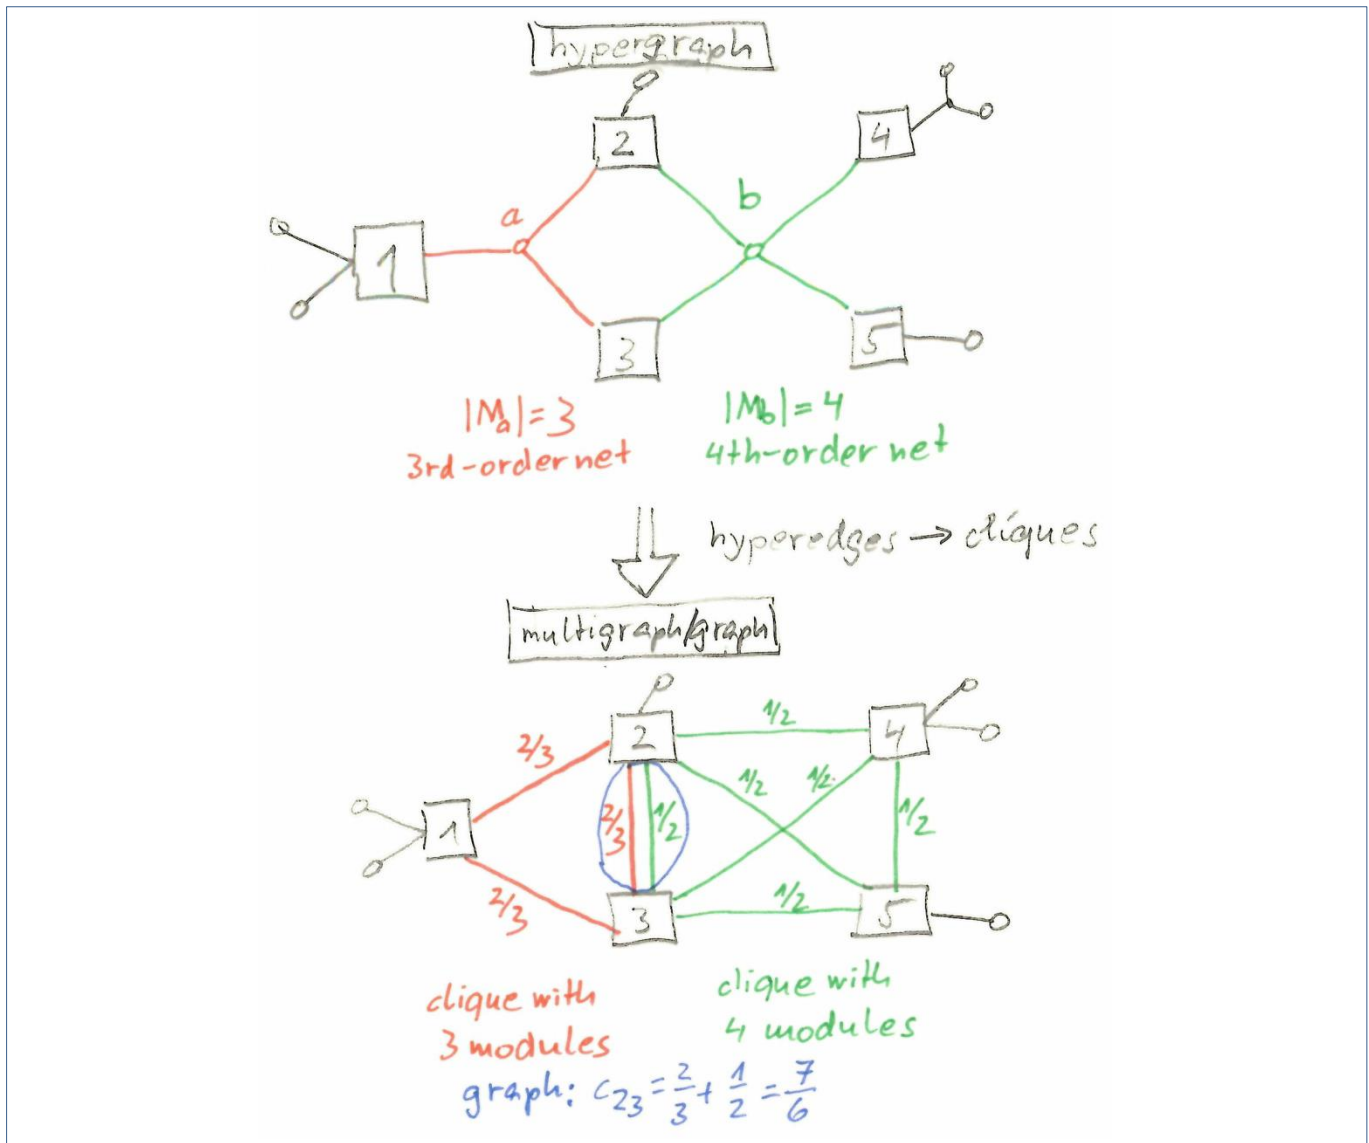 hypergraph
2
4
b
a
1
3
5
|Ma|=3
|Mb|=4
3rd-order net
4th-order net
hyperedges → clíques
multigraph/graph
2
1/2
4
2/3
1/2
1/2
2/3
1/2
1/2
1
2/3
3
1/2
5
clique with
3 modules
clique with
4 modules
graph: c23 = 2/3 + 1/2 = 7/6